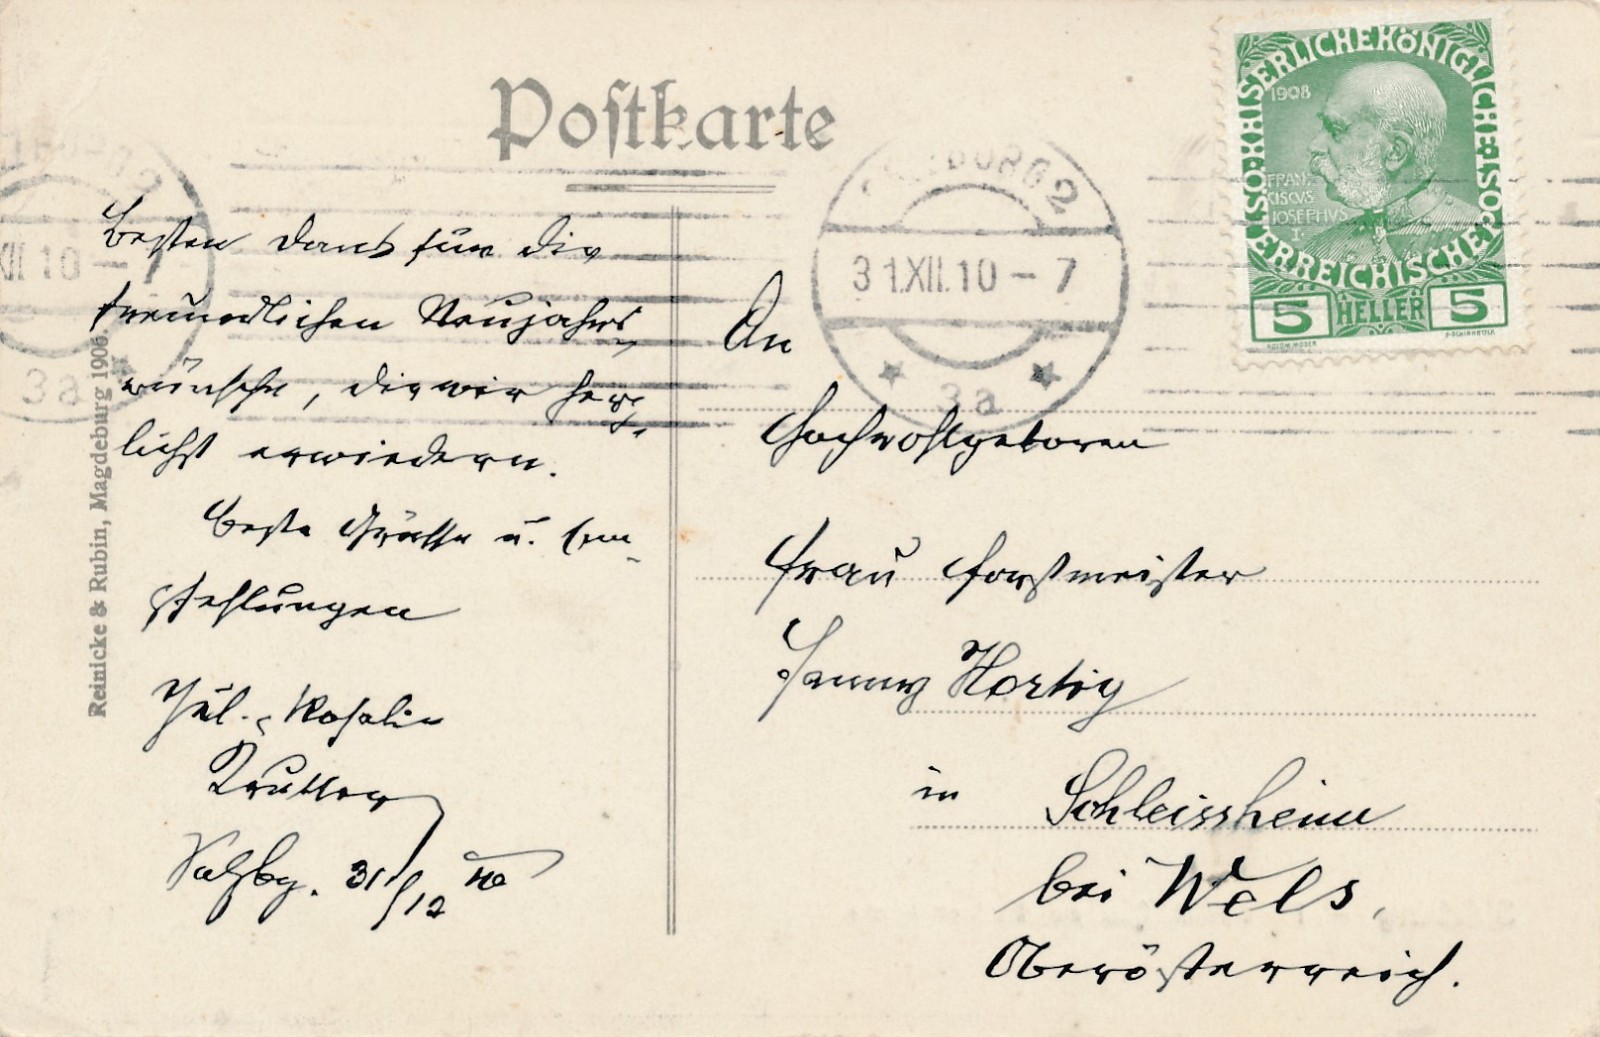 Postkarte
Besten Dank für die
freundlichen Neujahrs
wünsche, die wir herz-
lichst erwiedern.
Beste Grüsse u. Em-
pfehlungen
Jul. Rosalie
Salzbg. 31/12 10
Reinicke & Rubin, Magdeburg 1906.
An
Hochwohlgeboren
Frau Forstmeister
Fanny Hortig
in Schleissheim
bei Wels,
Oberösterreich.
SALZBURG 2
31.XII.10-7
3a
XII 10-7
3a
KAISERLICHE KÖNIGLICHE ÖSTERREICHISCHE POST
1908
FRAN
CISCVS
IOSEPHVS
I.
5 HELLER 5